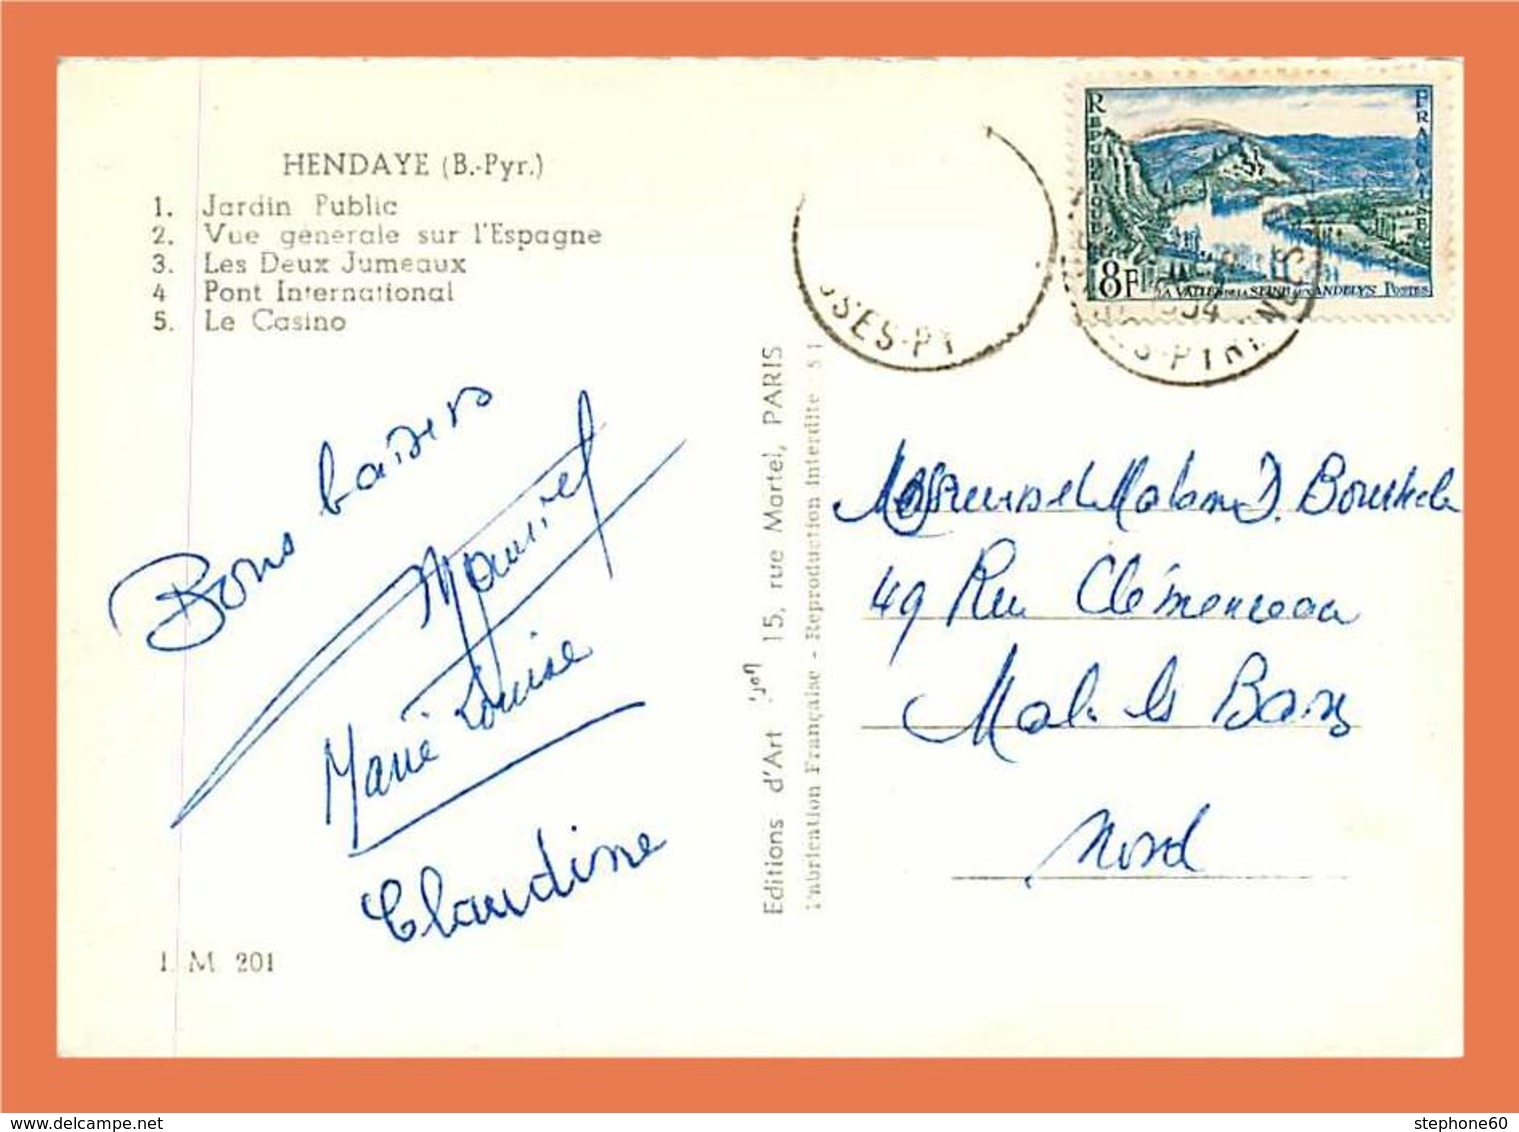 HENDAYE (B.-Pyr.)
1. Jardin Public
2. Vue générale sur l'Espagne
3. Les Deux Jumeaux
4 Pont International
5. Le Casino
Bons baisers
Marie Louise
Claudine
I. M 201
Editions d'Art "Yvon" 15, rue Martel, PARIS
Fabrication Française - Reproduction interdite 51
SES-PY
RÉPUBLIQUE FRANÇAISE
8F LA VALLÉE DE LA SEINE AUX ANDELYS POSTES
1954
S-PYRÉNÉES
et Madame
49 Rue Clémenceau
Malo les Bains
Nord
stephone60